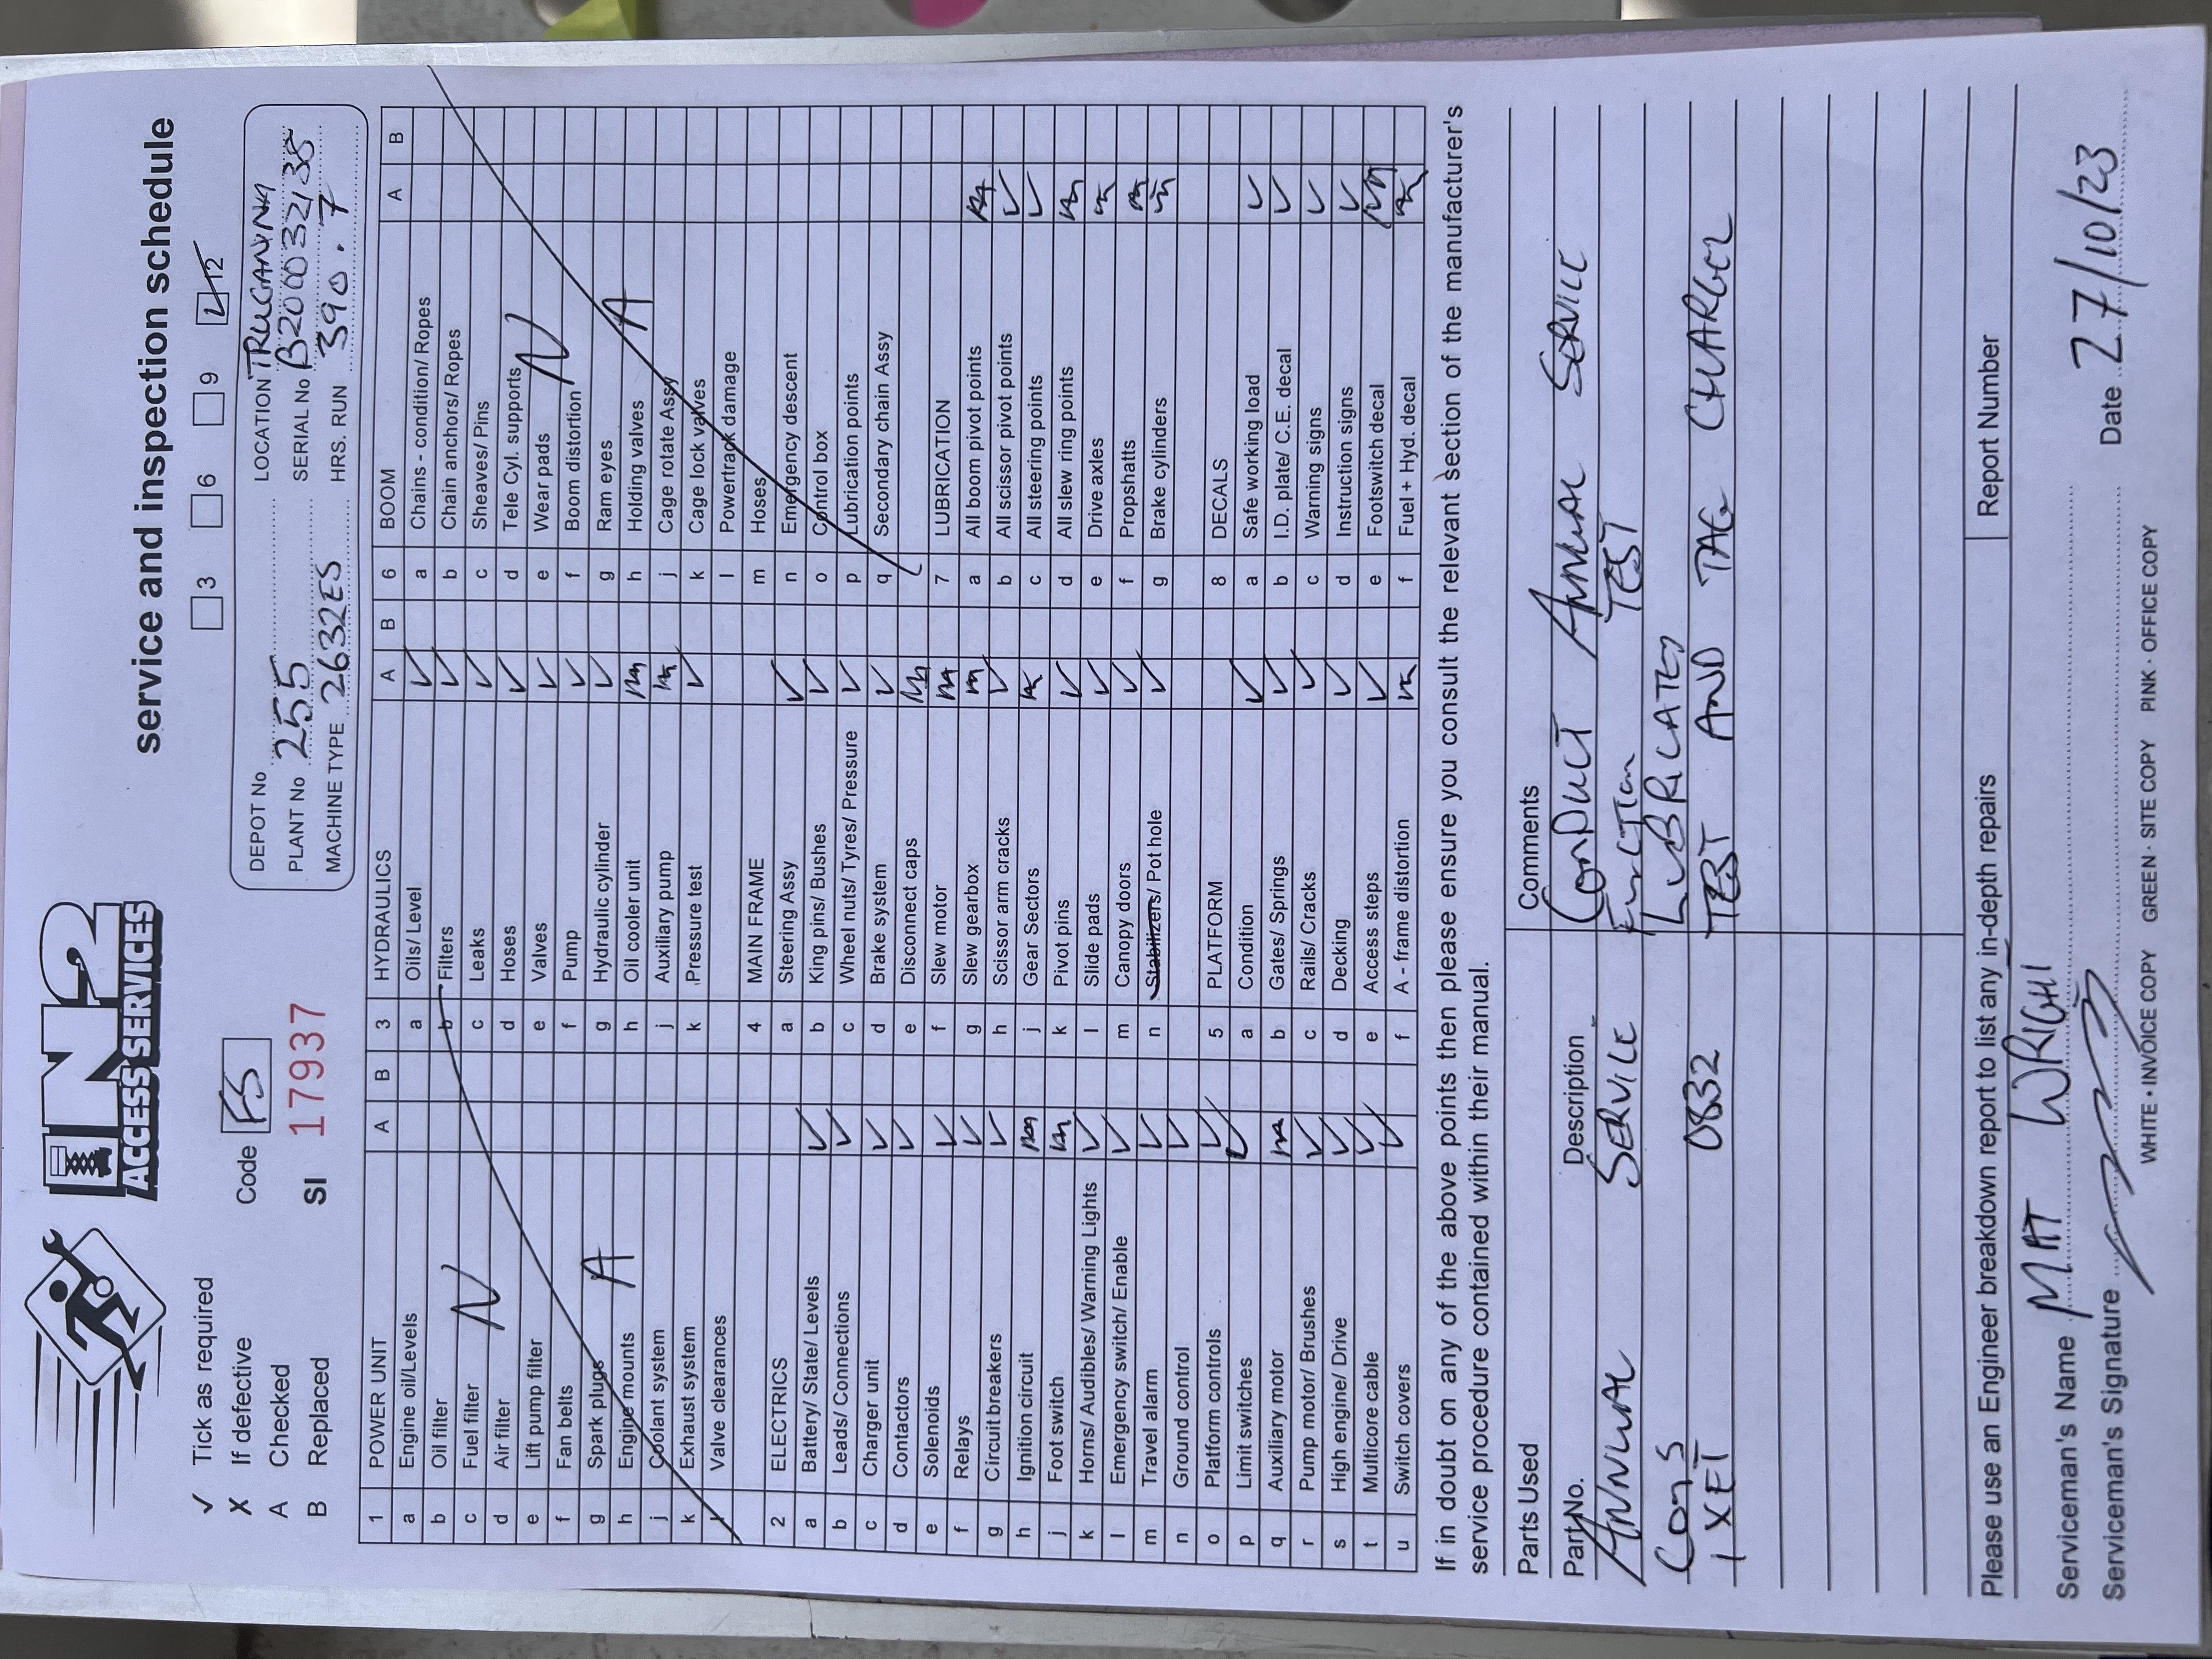 IN2
ACCESS SERVICES
service and inspection schedule
✓ Tick as required
X If defective
A Checked
B Replaced
Code FS
SI 17937
3 6 9 12
DEPOT No
PLANT No 255
MACHINE TYPE 2632ES
LOCATION TRUGANINA
SERIAL No B200032135
HRS. RUN 390.7
1 POWER UNIT A B
a Engine oil/Levels
b Oil filter
c Fuel filter
d Air filter
e Lift pump filter
f Fan belts
g Spark plugs
h Engine mounts
j Coolant system
k Exhaust system
l Valve clearances
N A
2 ELECTRICS
a Battery/ State/ Levels ✓
b Leads/ Connections ✓
c Charger unit ✓
d Contactors ✓
e Solenoids ✓
f Relays ✓
g Circuit breakers ✓
h Ignition circuit NA
j Foot switch NA
k Horns/ Audibles/ Warning Lights ✓
l Emergency switch/ Enable ✓
m Travel alarm ✓
n Ground control ✓
o Platform controls ✓
p Limit switches ✓
q Auxiliary motor NA
r Pump motor/ Brushes ✓
s High engine/ Drive ✓
t Multicore cable ✓
u Switch covers ✓
3 HYDRAULICS A B
a Oils/ Level ✓
b Filters ✓
c Leaks ✓
d Hoses ✓
e Valves ✓
f Pump ✓
g Hydraulic cylinder ✓
h Oil cooler unit NA
j Auxiliary pump NA
k Pressure test ✓
4 MAIN FRAME
a Steering Assy ✓
b King pins/ Bushes ✓
c Wheel nuts/ Tyres/ Pressure ✓
d Brake system ✓
e Disconnect caps NA
f Slew motor NA
g Slew gearbox NA
h Scissor arm cracks ✓
j Gear Sectors NA
k Pivot pins ✓
l Slide pads ✓
m Canopy doors ✓
n Stabilizers/ Pot hole ✓
5 PLATFORM
a Condition ✓
b Gates/ Springs ✓
c Rails/ Cracks ✓
d Decking ✓
e Access steps ✓
f A - frame distortion NA
6 BOOM A B
a Chains - condition/ Ropes
b Chain anchors/ Ropes
c Sheaves/ Pins
d Tele Cyl. supports
e Wear pads
f Boom distortion
g Ram eyes
h Holding valves
j Cage rotate Assy
k Cage lock valves
l Powertrack damage
m Hoses
n Emergency descent
o Control box
p Lubrication points
q Secondary chain Assy
N A
7 LUBRICATION
a All boom pivot points NA
b All scissor pivot points ✓
c All steering points ✓
d All slew ring points NA
e Drive axles NA
f Propshatts NA
g Brake cylinders NA
8 DECALS
a Safe working load ✓
b I.D. plate/ C.E. decal ✓
c Warning signs ✓
d Instruction signs ✓
e Footswitch decal NA
f Fuel + Hyd. decal NA
If in doubt on any of the above points then please ensure you consult the relevant section of the manufacturer's
service procedure contained within their manual.
Parts Used Comments
Part No. Description CONDUCT ANNUAL SERVICE
ANNUAL SERVICE FUNCTION TEST
CONS LUBRICATED
1 XET 0832 TEST AND TAG CHARGER
Please use an Engineer breakdown report to list any in-depth repairs Report Number
Serviceman's Name MAT WRIGHT
Serviceman's Signature Date 27/10/23
WHITE • INVOICE COPY GREEN • SITE COPY PINK • OFFICE COPY